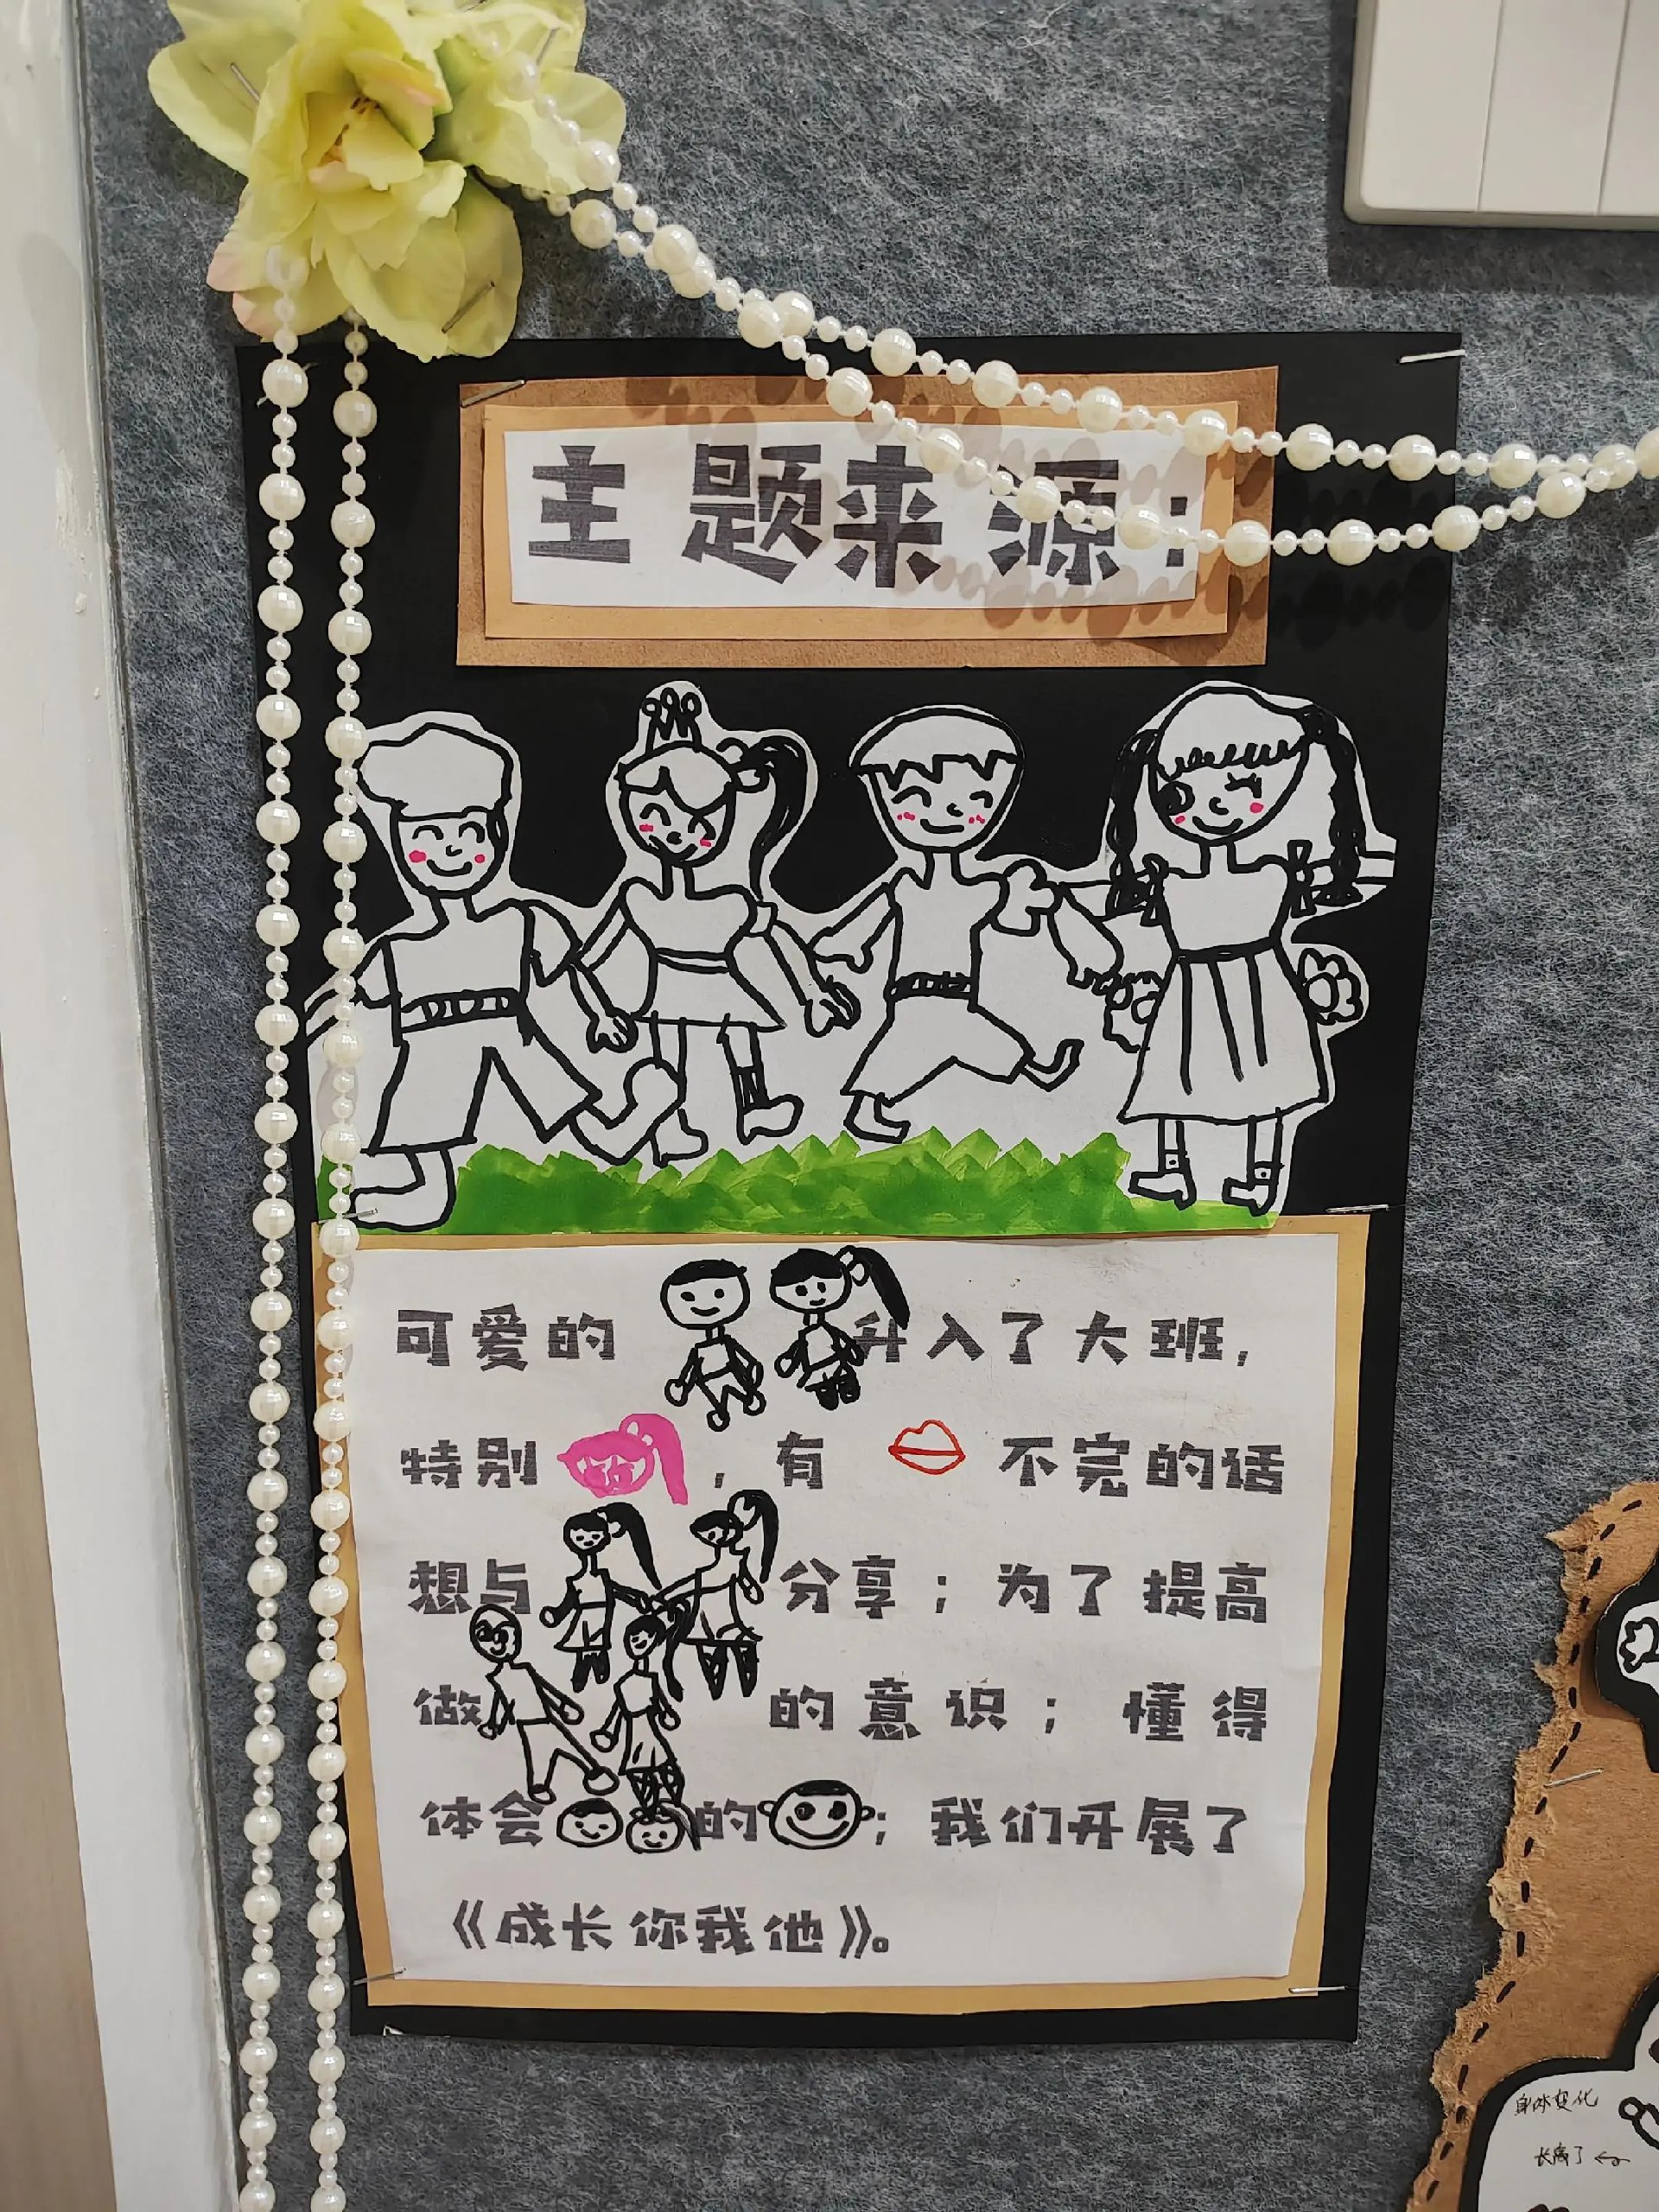 主题来源：
可爱的升入了大班，
特别，有不完的话
想与分享；为了提高
做的意识；懂得
体会的；我们开展了
《成长你我他》。
身体变化
长高了